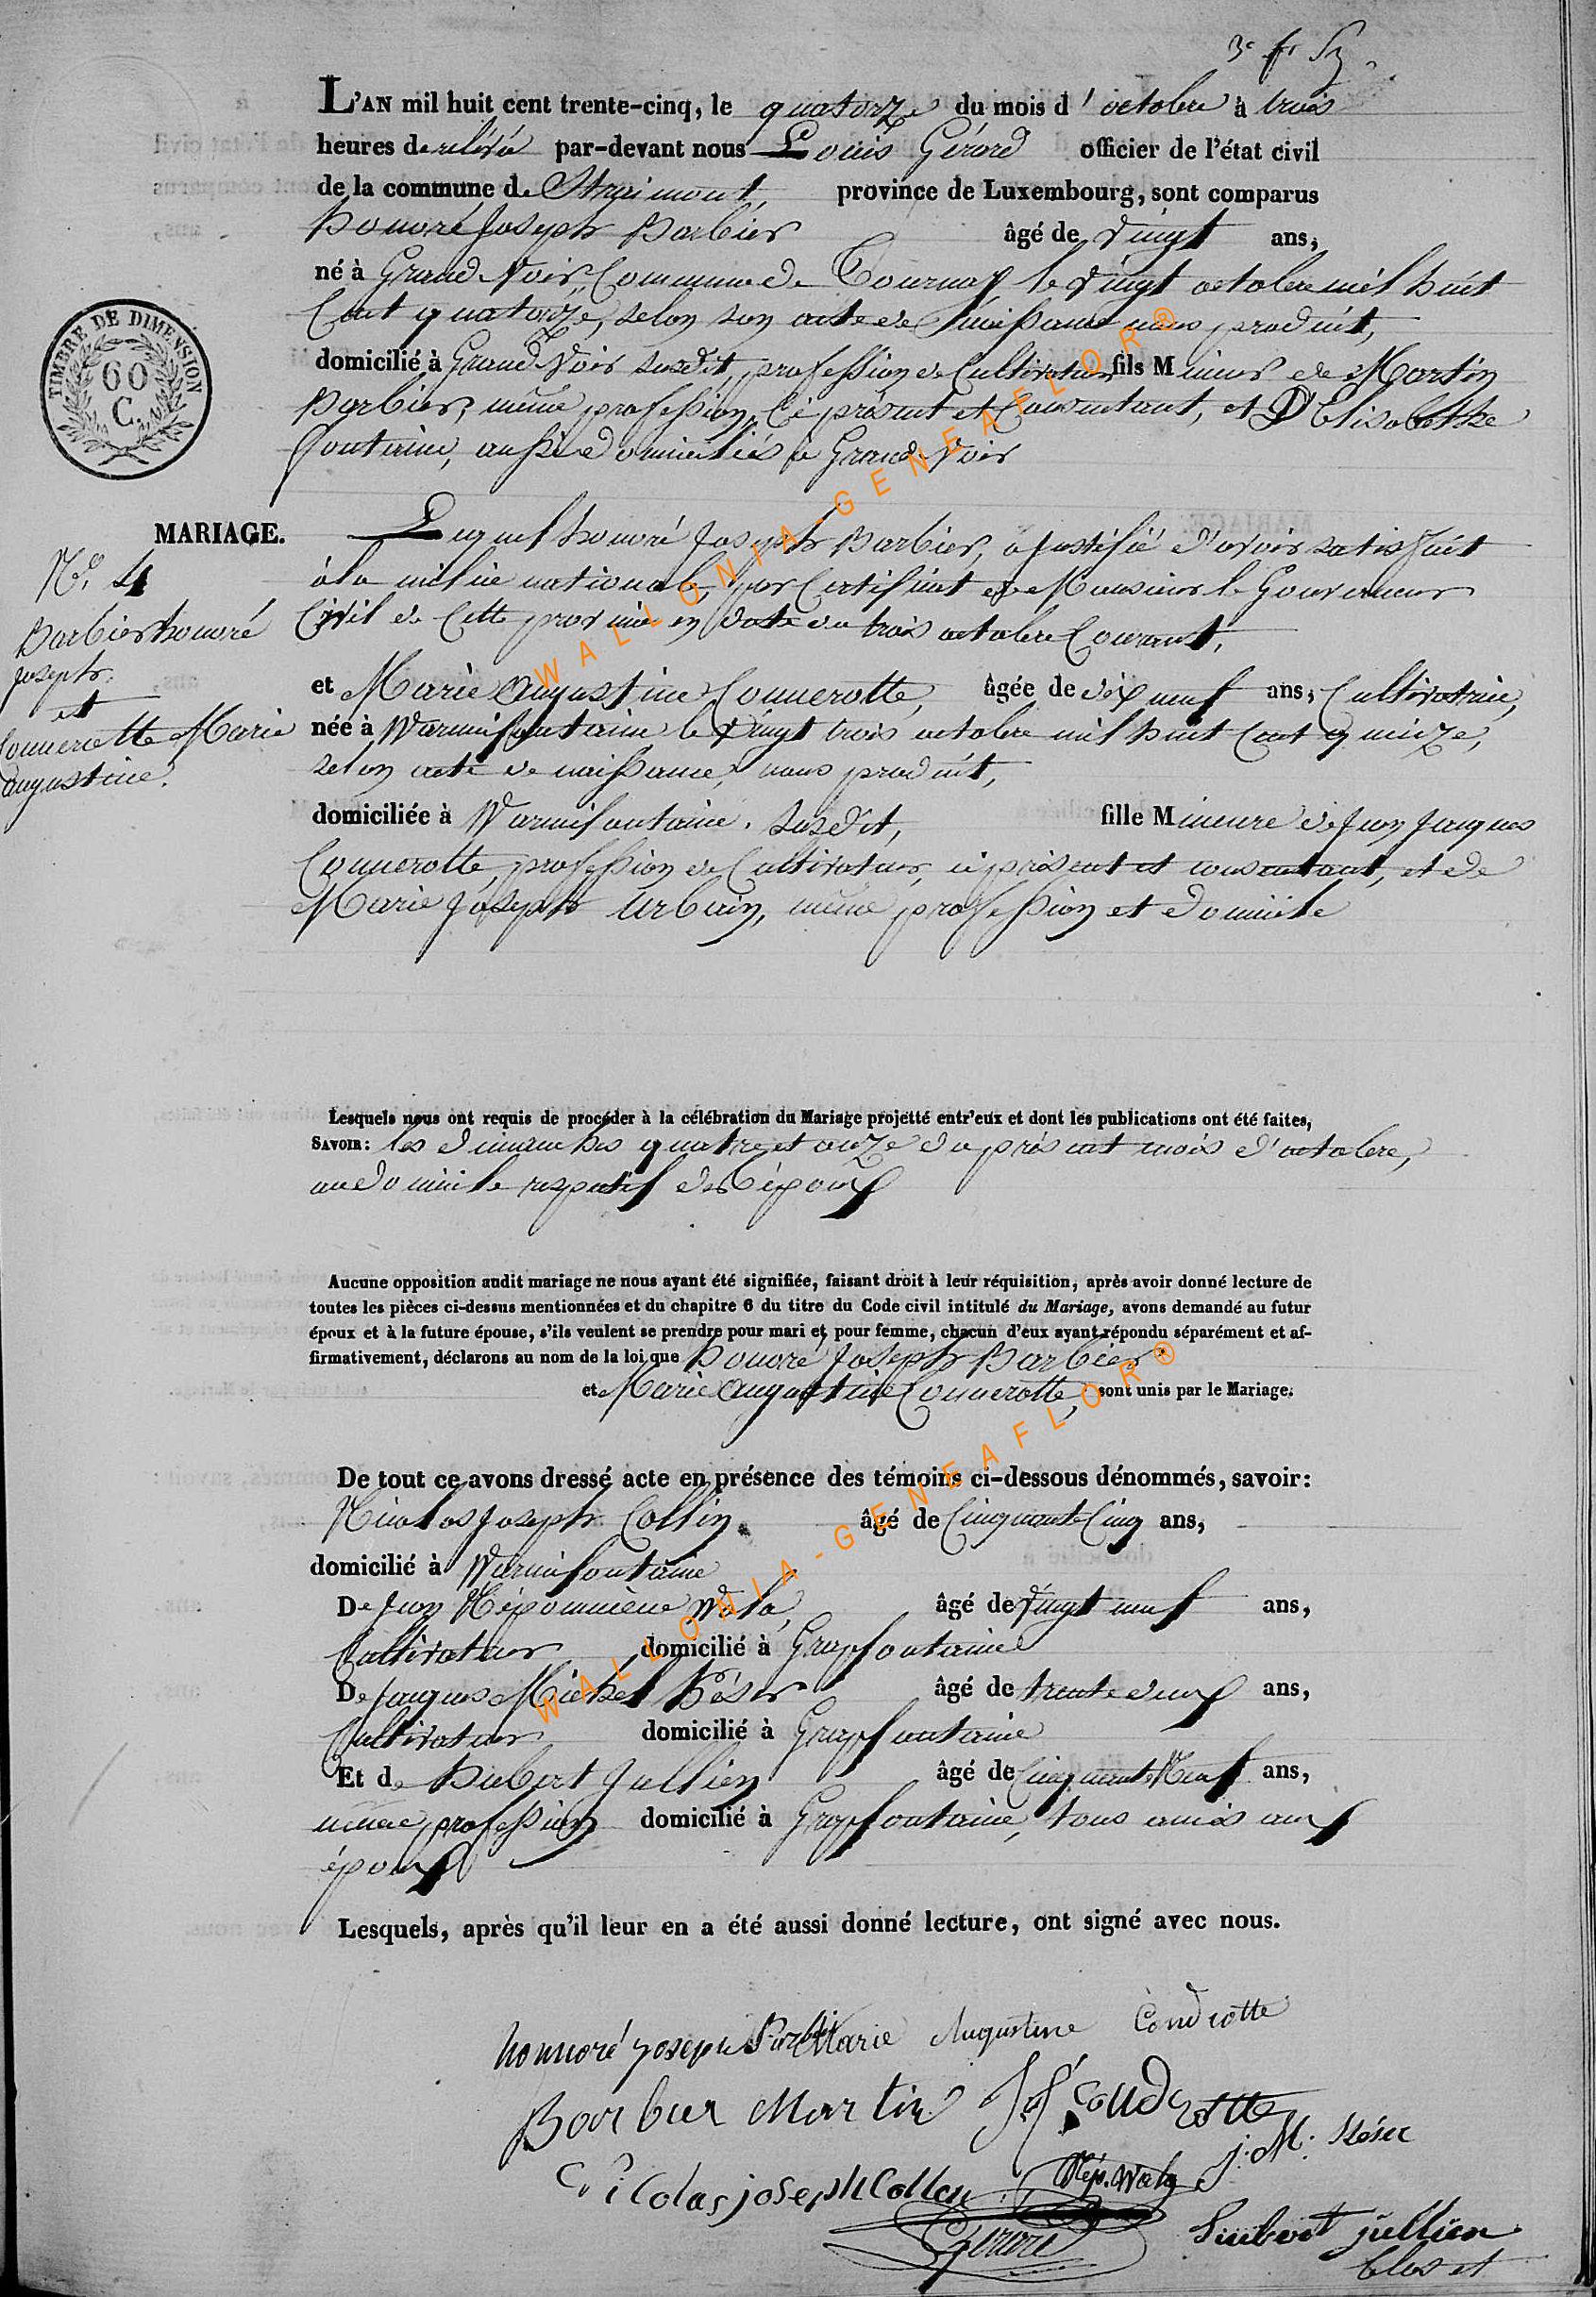 L'AN mil huit cent trente-cinq, le quatorze du mois d'octobre à trois
heures de relévé par-devant nous Louis Gérard officier de l'état civil
de la commune de Straimont, province de Luxembourg, sont comparus
honoré Joseph Barbier âgé de vingt ans,
né à Grand Voir, Commune de Tournay le vingt octobre mil huit
Cent quatorze, selon son acte de naissance nous produit,
domicilié à Grand Voir susdit, profession de Cultivateur fils Mineur de Martin
Barbier, même profession, ci présent et consentant, et D' Elisabethe
fontaine, aussi domiciliés à Grand Voir
TIMBRE DE DIMENSION
60
C.
MARIAGE.
No. 4
Barbier honoré
joseph.
et
Connerotte Marie
augustine.
Lequel honoré Joseph Barbier, a justifié d'avoir satisfait
à la milice nationale, par Certificat de Monsieur le Gouverneur
Civil de Cette province en date du trois octobre Courant,
et Marie Augustine Connerotte, âgée de dix neuf ans, Cultivatrice,
née à Warmifontaine le vingt trois octobre mil huit Cent quinze,
selon acte de naissance, nous produit,
domiciliée à Warmifontaine, susdit, fille Mineure de Jean Jacques
Connerotte, profession de Cultivateur, ci présent et consentant, et de
Marie Joseph Urbain, même profession et domicile
Lesquels nous ont requis de procéder à la célébration du Mariage projetté entr'eux et dont les publications ont été faites,
SAVOIR: les dimanches quatre et onze du présent mois d'octobre,
au domicile respectif des époux
Aucune opposition audit mariage ne nous ayant été signifiée, faisant droit à leur réquisition, après avoir donné lecture de
toutes les pièces ci-dessus mentionnées et du chapitre 6 du titre du Code civil intitulé du Mariage, avons demandé au futur
époux et à la future épouse, s'ils veulent se prendre pour mari et pour femme, chacun d'eux ayant répondu séparément et af-
firmativement, déclarons au nom de la loi que honoré Joseph Barbier
et Marie Augustine Connerotte, sont unis par le Mariage.
De tout ce avons dressé acte en présence des témoins ci-dessous dénommés, savoir:
Nicolas Joseph Collin, âgé de Cinquante Cinq ans,
domicilié à Warmifontaine
De Jean Népomucène Wala, âgé de vingt neuf ans,
Cultivateur domicilié à Grapfontaine
De Jacques Michel Héser âgé de trente deux ans,
Cultivateur domicilié à Grapfontaine
Et de Hubert Jullien âgé de Cinquante Neuf ans,
même profession domicilié à Grapfontaine, tous amis aux
époux
Lesquels, après qu'il leur en a été aussi donné lecture, ont signé avec nous.
honnoré joseph Barbier Marie Augustine Condrotte
Barbier Martin JJ Coudrotte
J: M: Héser
Nicolas joseph Collin Nép. Wala
Gérard
huibert jullien
Closet
WALLONIA-GENEAFLOR®
WALLONIA-GENEAFLOR®